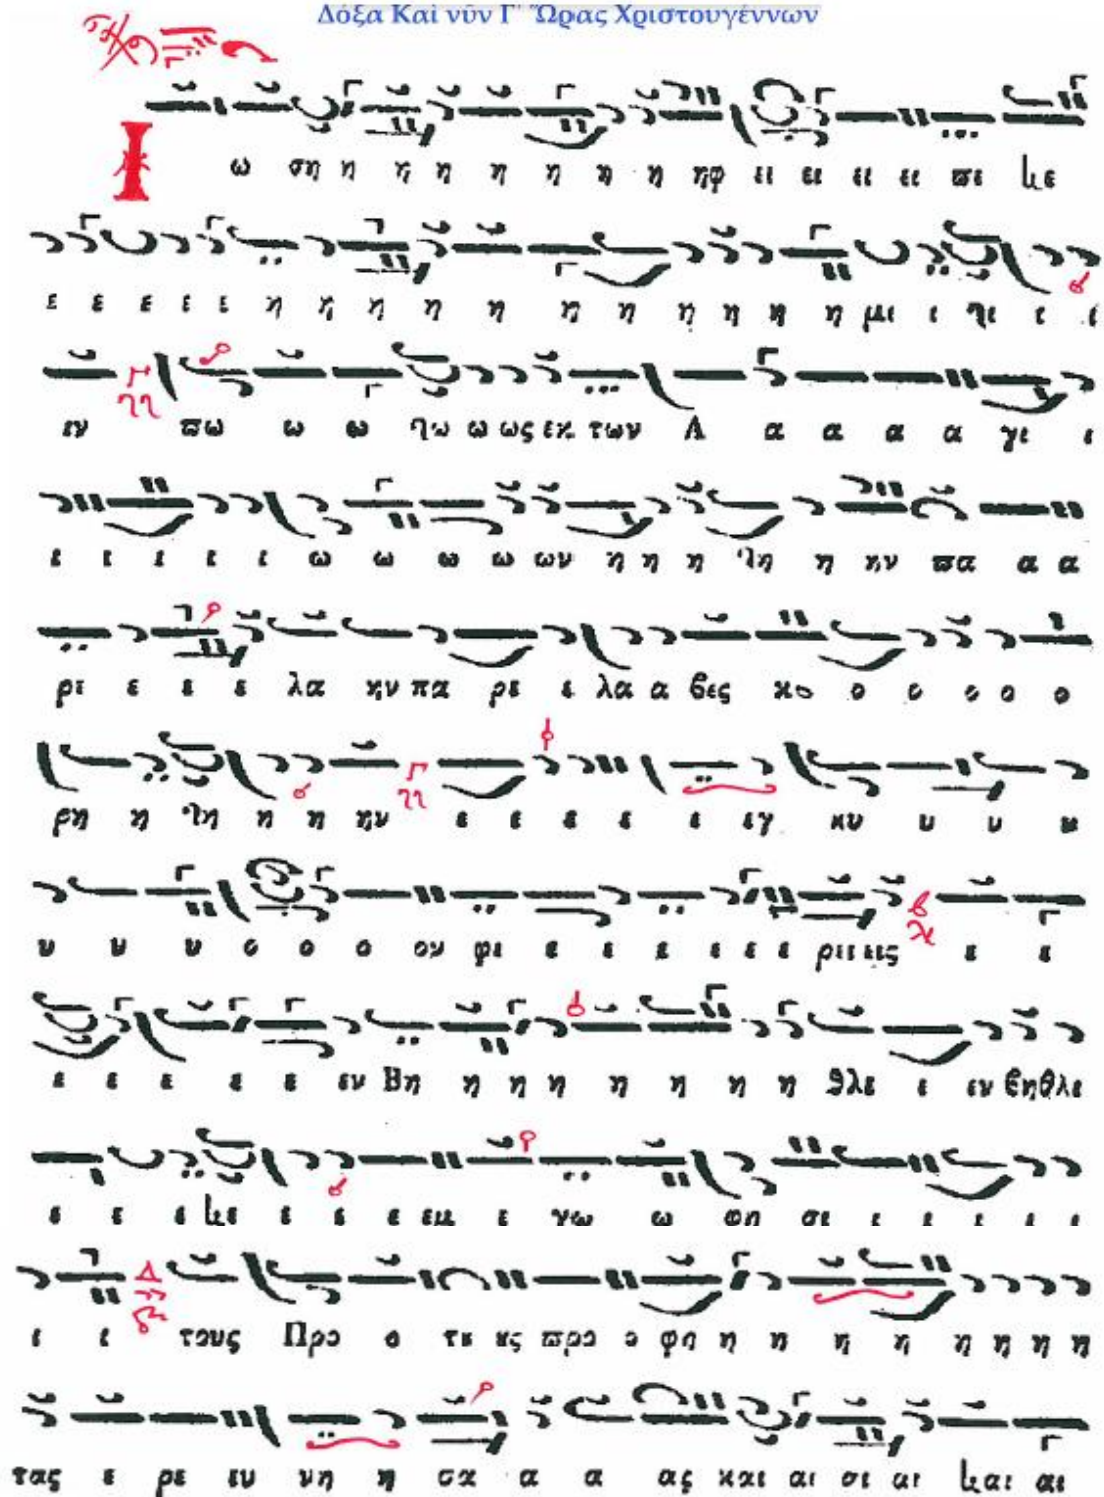 Δόξα Καὶ νῦν Γ΄ Ὥρας Χριστουγέννων
Ι ω ση η η η η η η η ηφ ει ει ει ει πε με
ε ε ε ε ε η η η η η η η η η η η μι ι ι ι
εν πω ω ω ω ω ως εκ των Α α α α α γι ι
ι ι ι ι ι ω ω ω ω ων η η η η η ην πα α α
ρε ε ε ε λα ην πα ρε ε λα α βες κο ο ο ο ο ο
ρη η η η η ην ε ε ε ε ε εγ κυ υ υ υ
υ υ υ ο ο ο ον φε ε ε ε ε ε ε ρεις ε ε
ε ε ε ε ε εν Βη η η η η η η η θλε ε εν βηθλε
ε ε ε ε ε ε εμ ε γω ω φη σι ι ι ι ι ι
ι ι τους Προ ο προ ο φη η η η η η η η η
τας ε ρε ευ νη η σα α α ας και αι σε αι και αι